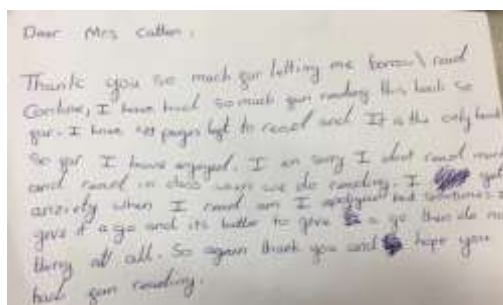 Dear Mrs Catton,
Thank you so much gor letting me borrow \ read
I have had so much gun reading this book so
gar. I have pages legt to read and It is the only book
So gar I have enjoyed. I am sorry I dont read much
and read in class when we do reading. I get
anxiety when I read am I but sometimes I
give it a go and its better to give a go then do no
thing at all. So again thank you and hope you
have gun reading.